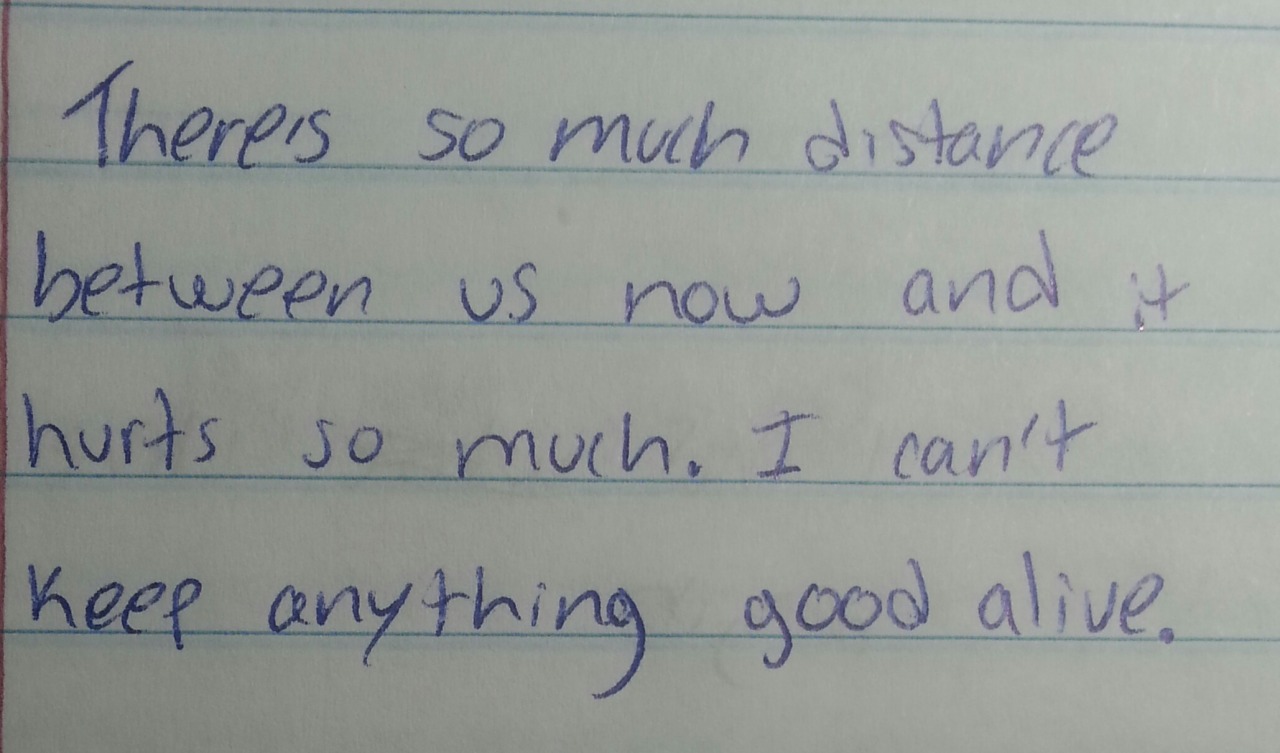 There's so much distance
between us now and it
hurts so much. I can't
keep anything good alive.